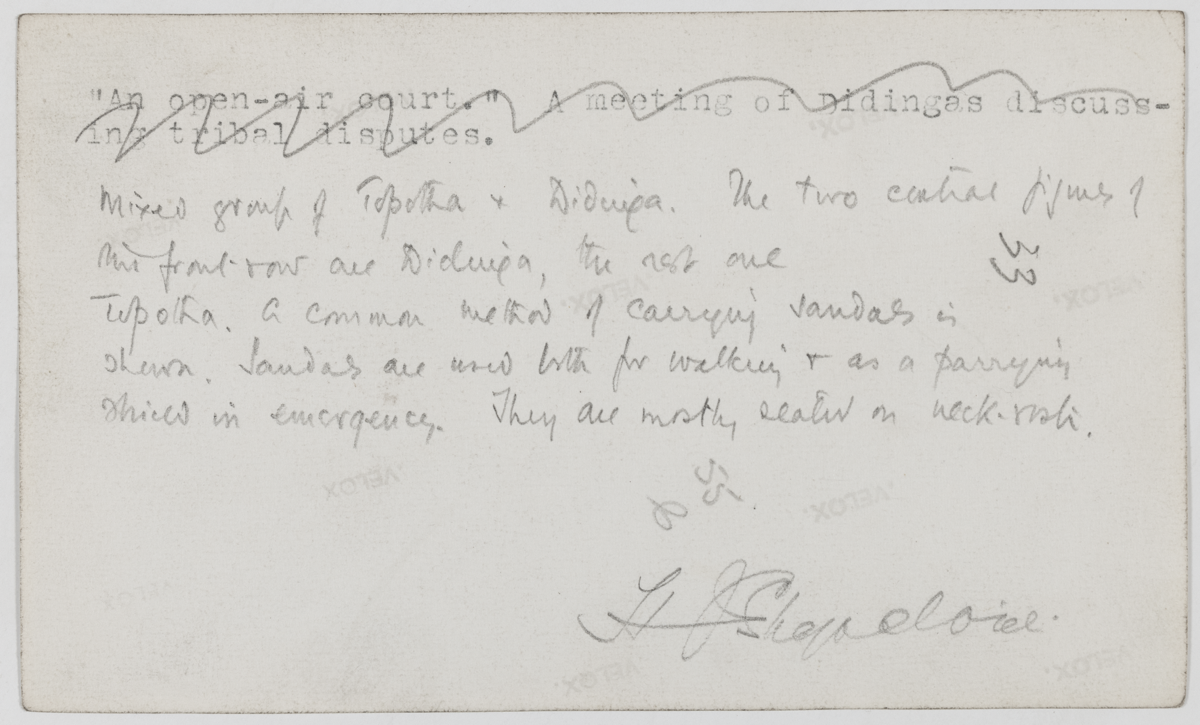 "An open-air court."  A meeting of Didingas discuss-
ing tribal disputes.
Mixed group of Topotha + Didinga. The two central figures of
this front row are Didinga, the rest are
33
Topotha. A common method of carrying sandals is
shewn. Sandals are used both for walking + as a parrying
shield in emergency. They are mostly seated on neck-rests.
VELOX
VELOX
55
H J